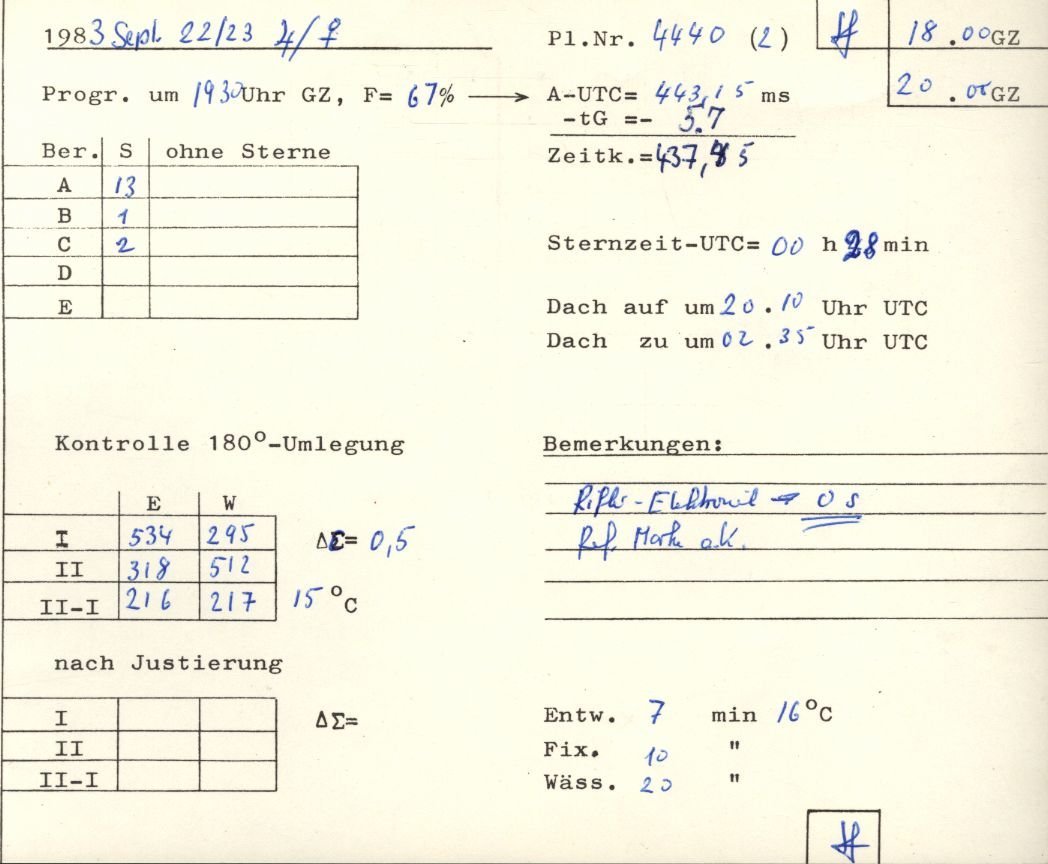 1983 Sept. 22/23 ♃/♀ Pl.Nr. 4440 (2) 18.00GZ
Progr. um 1930 Uhr GZ, F= 67% → A-UTC= 443,15 ms 20.00GZ
-tG =- 5.7
Ber. S ohne Sterne Zeitk.=437,45
A 13
B 1
C 2 Sternzeit-UTC= 00 h 28 min
D
E Dach auf um 20.10 Uhr UTC
Dach zu um 02.35 Uhr UTC
Kontrolle 180°-Umlegung Bemerkungen:
E W Rifler-Elektronik → 0 s
I 534 295 ΔΣ= 0,5 Ref. Marke o.K.
II 318 512
II-I 216 217 15 °C
nach Justierung
I ΔΣ= Entw. 7 min 16°C
II Fix. 10 "
II-I Wäss. 20 "